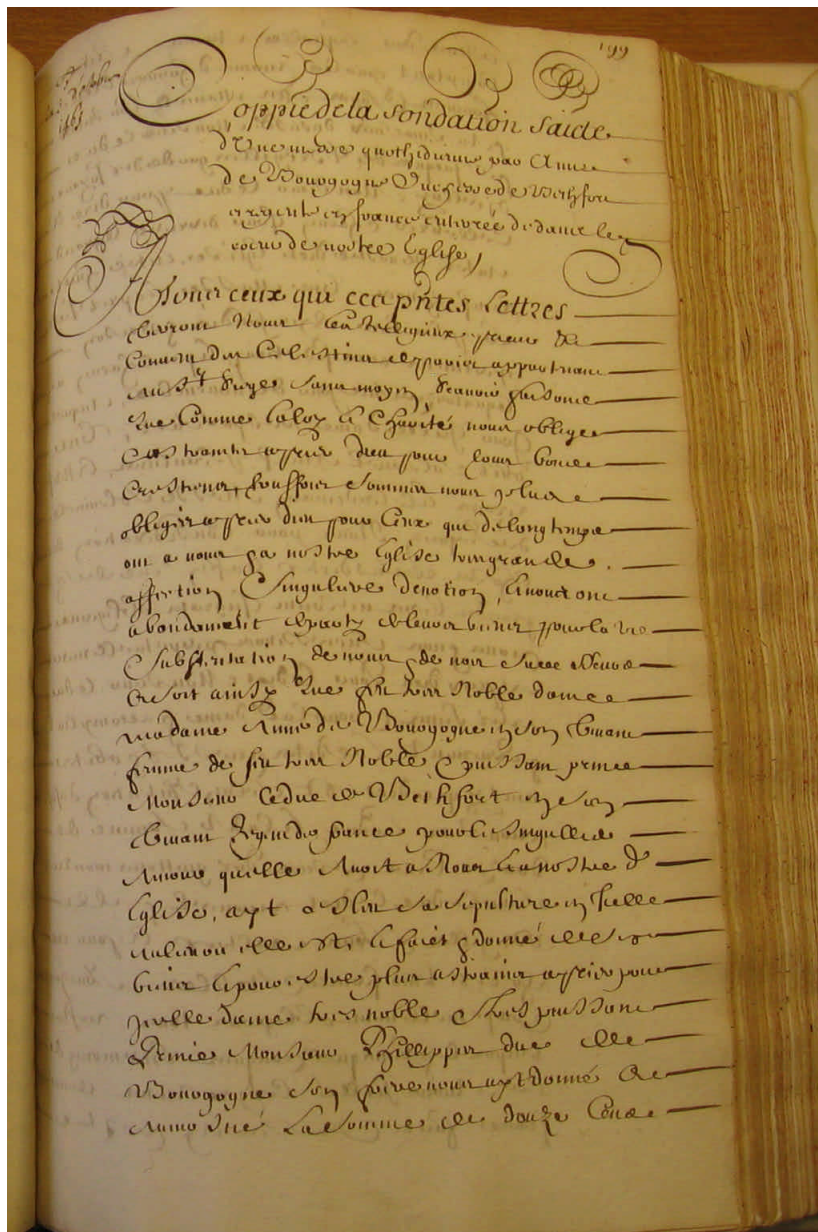 199
1461
Coppie de la fondation faicte
d'Une messe quothidienne par Anne
de Bourgogne Duchesse de Bethfort
regente en france enterrée dedans le
coeur de nostre Eglise,
A tous ceux qui ces pntes Lettres
verront Nous Les Religieux prieur &
Convent des Celestins de paris appartenans
Au St Siege sans moyen scavoir faisons
Que Comme la loy de Charité nous oblige
Et astraint a prier dieu pour tous bons
Crestiens,
obliger a prier dieu pour Ceux qui de long temps
ont a nous & a nostre Eglise tres grande
affection & singuliere devotion, & nous ont
abondament de leurs biens pour la vie
& substentation de nous & de noz
Et soit ainsy Que feu tres Noble dame
madame Anne de Bourgogne en son vivant
femme de feu tres Noble & puissant prince
Monseigr le duc de Bethfort en son
vivant Regent de france pour la singulliere
Amour qu'elle Avoit a Nous & a nostre de
Eglise, ayt esleu sa sepulture en Icelle
Auquel lieu elle est, & faict & donné de ses
biens & pour estre plus astrains a prier pour
Icelle dame tres noble & tres puissant
Prince Monseigr Phillippes duc de
Bourgogne son frere nous ayt donné Et
Aumosné La somme de douze Cens